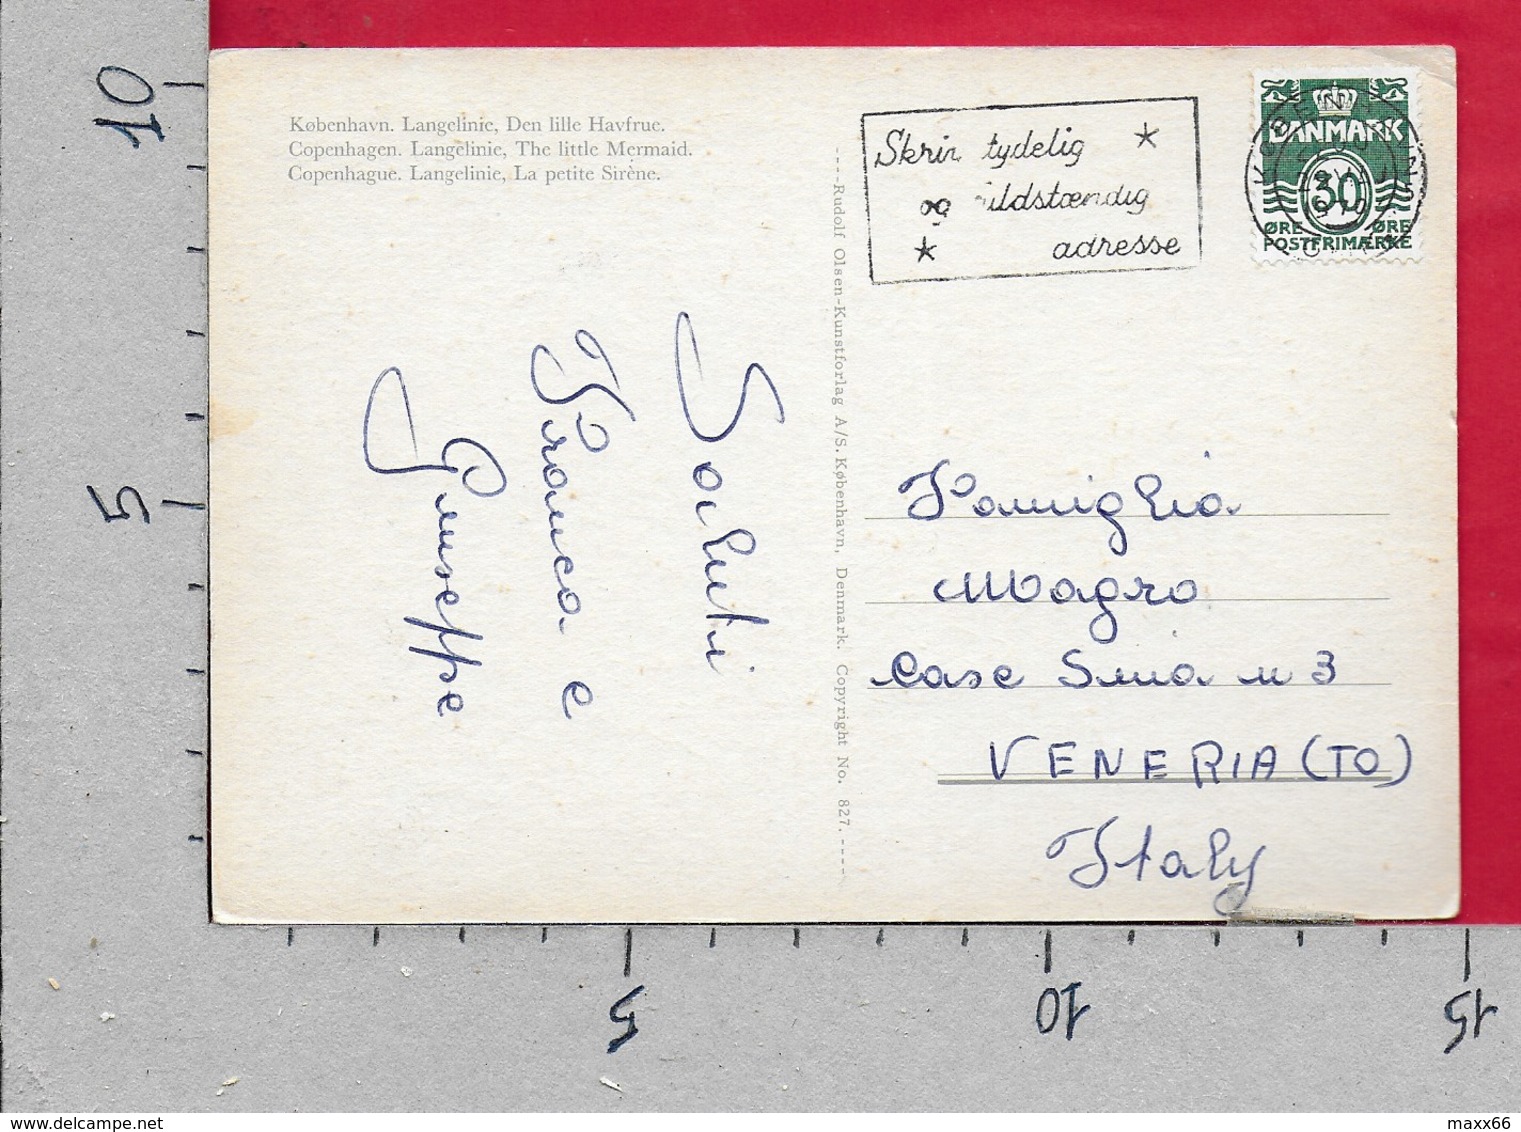 København. Langelinie, Den lille Havfrue.
Copenhagen. Langelinie, The little Mermaid.
Copenhague. Langelinie, La petite Sirène.
Saluti
Franca e
Giuseppe
----Rudolf Olsen-Kunstforlag A/S. København, Denmark. Copyright No. 827.----
Skriv tydelig
og fuldstændig
adresse
DANMARK
30
ØRE ØRE
POSTFRIMÆRKE
Famiglia
Magro
Case Snia n 3
VENERIA (TO)
Italy
10
5
5
10
15
www.delcampe.net
maxx66